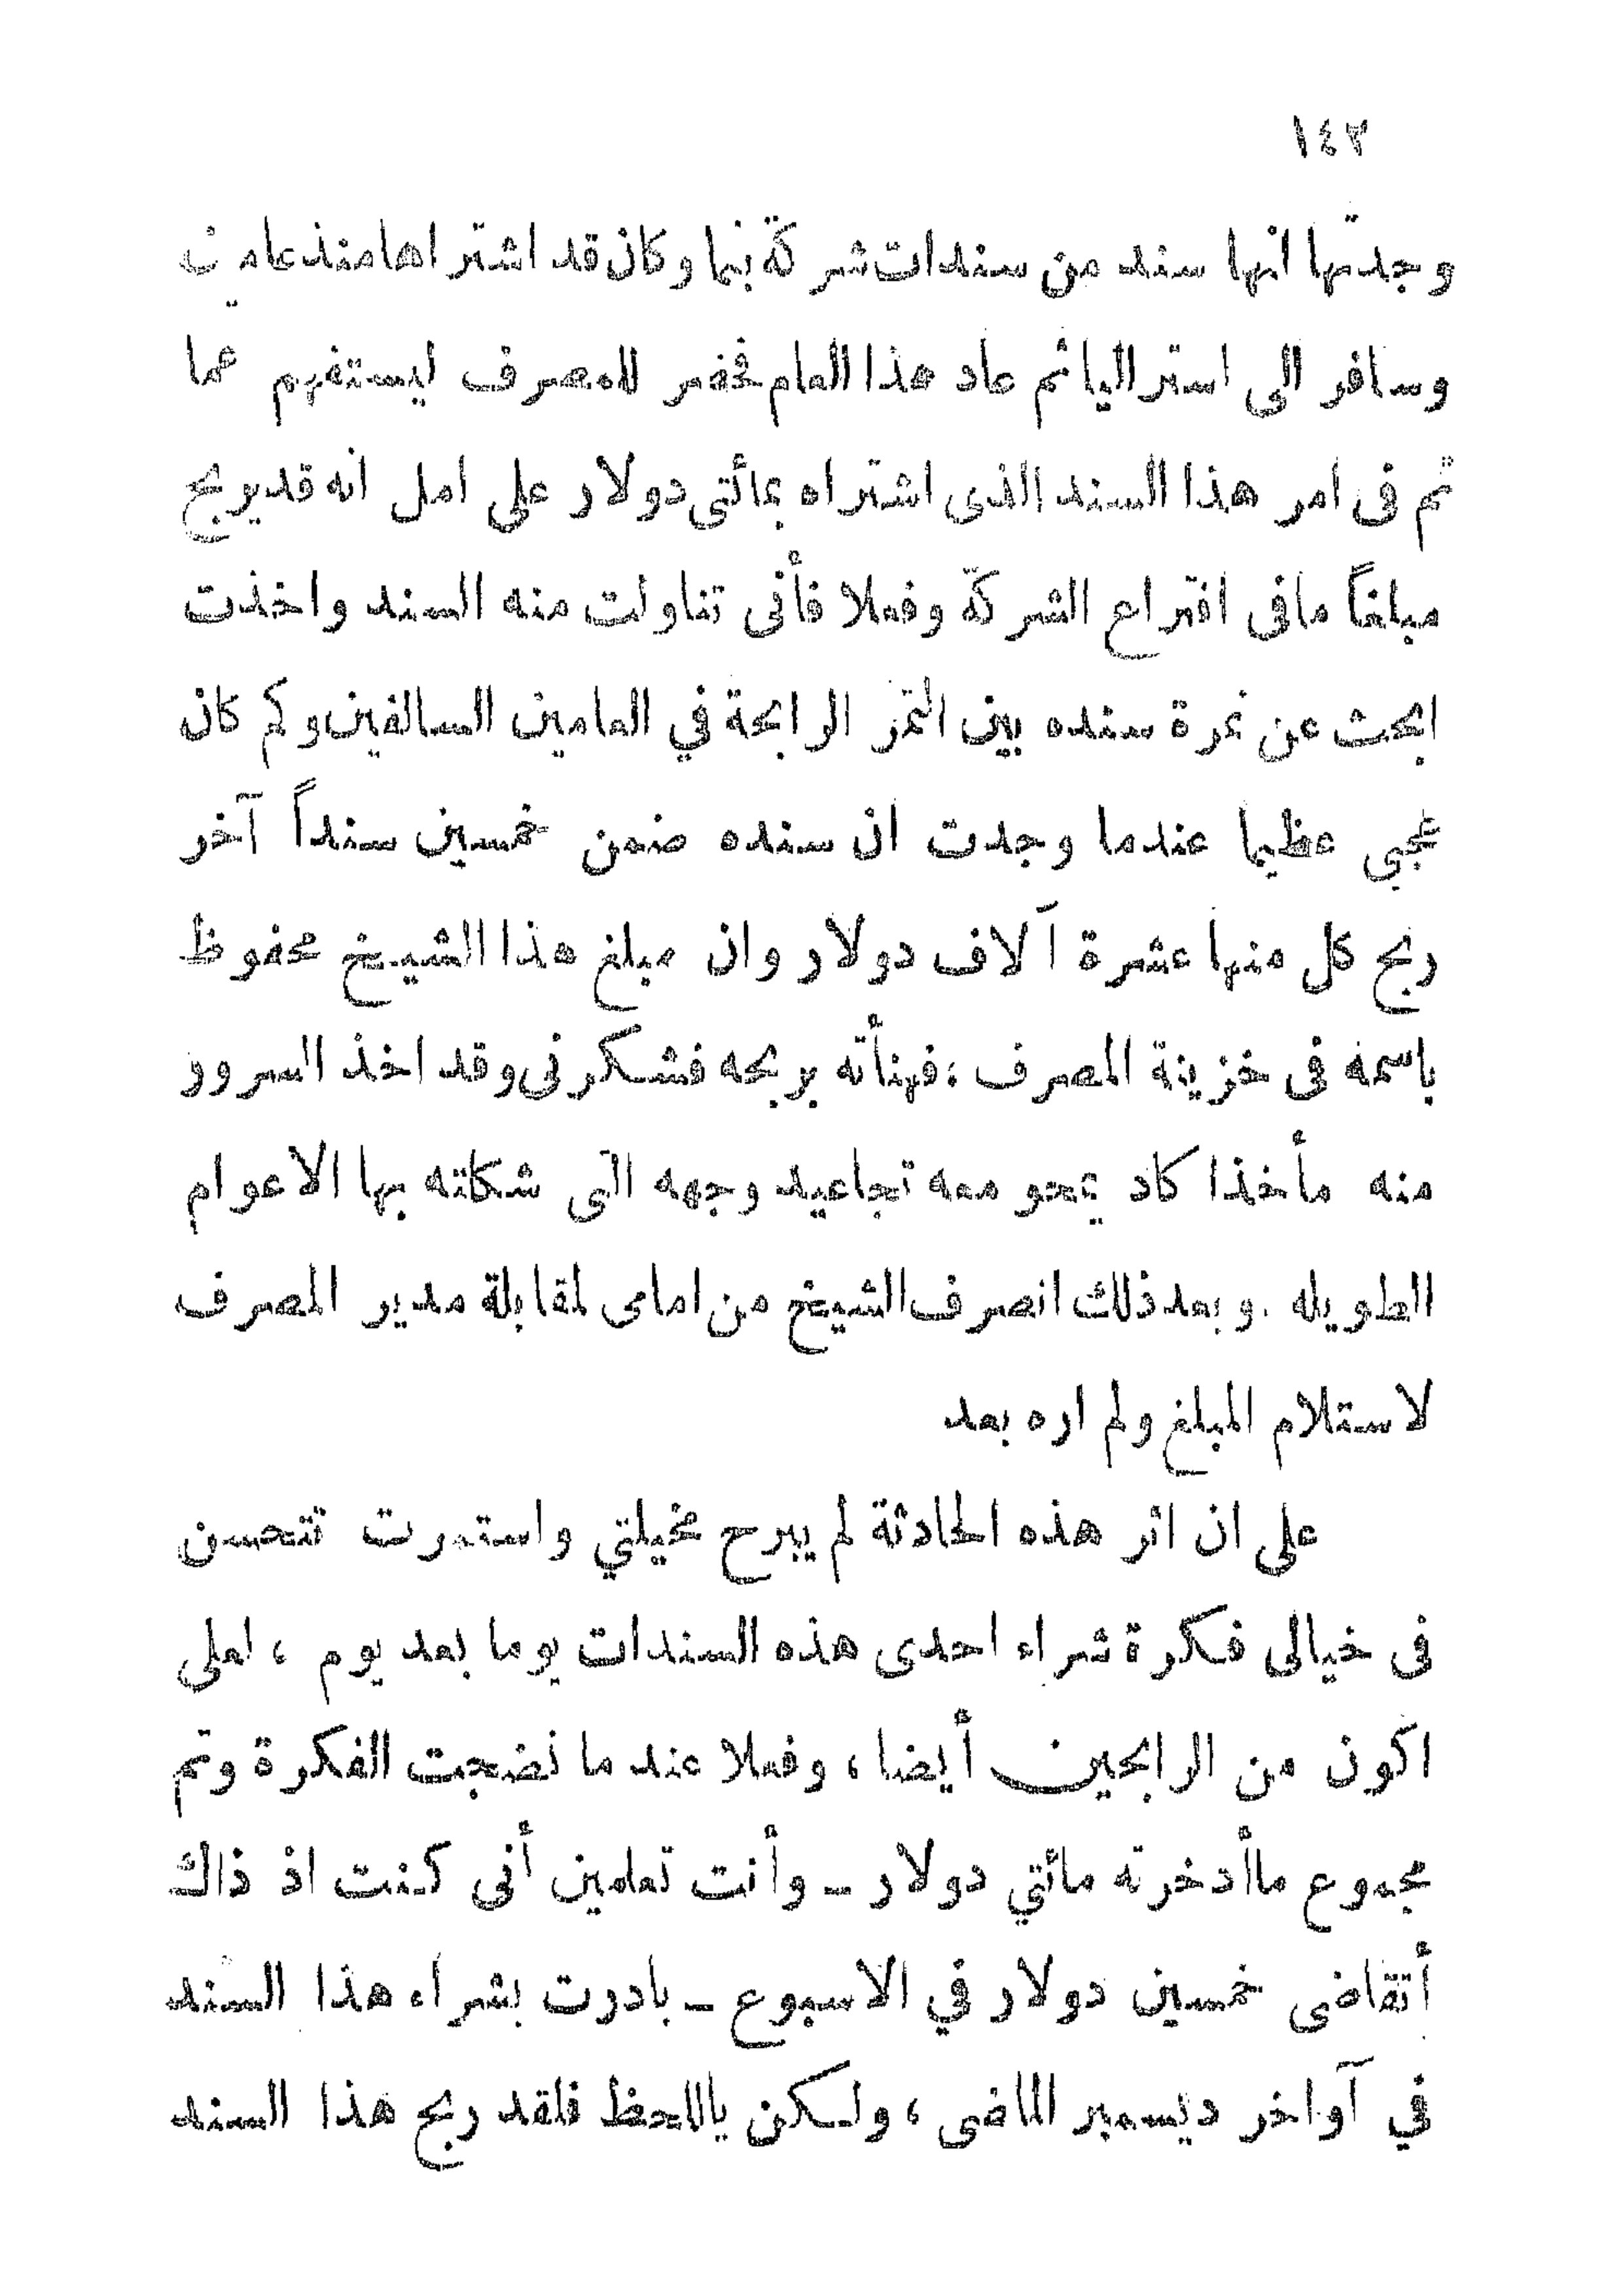 ١٤٢
وجدتها انها سند من سندات شركة بنما وكان قد اشتراها منذ عامين
وسافر الى استراليا ثم عاد هذا العام فحضر للمصرف ليستفهم عما
تم فى امر هذا السند الذى اشتراه بمائتى دولار على امل انه قد يربح
مبلغاً مافى اقتراع الشركة وفعلا فأنى تناولت منه السند واخذت
ابحث عن نمرة سنده بين النمر الرابحة في العامين السالفين وكم كان
عجبي عظيما عندما وجدت ان سنده ضمن خمسين سنداً آخر
ربح كل منها عشرة آلاف دولار وان مبلغ هذا الشيخ محفوظ
باسمه فى خزينة المصرف ؛ فهنأته بربحه فشكرنى وقد اخذ السرور
منه مأخذا كاد يمحو معه تجاعيد وجهه التى شكلته بها الاعوام
الطويله . وبعد ذلك انصرف الشيخ من امامى لمقابلة مدير المصرف
لاستلام المبلغ ولم اره بعد
على ان اثر هذه الحادثة لم يبرح مخيلتي واستمرت تتحسن
فى خيالى فكرة شراء احدى هذه السندات يوما بعد يوم ، لعلى
اكون من الرابحين أيضا ، وفعلا عند ما نضجت الفكرة وتم
مجموع ماأدخرته مائتي دولار ــ وأنت تعلمين أنى كنت اذ ذاك
أتقاضى خمسين دولار في الاسبوع ــ بادرت بشراء هذا السند
في آواخر ديسمبر الماضى ، ولكن ياللحظ فلقد ربح هذا السند